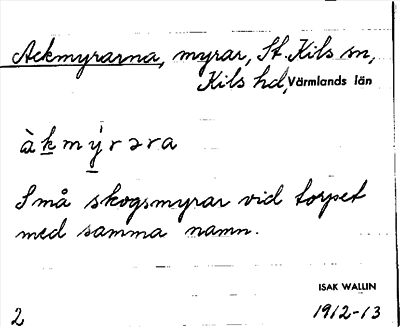 Ackmyrarna, myrar, St. Kils sn,
Kils hd, Värmlands län
àkmýrəra
Små skogsmyrar vid torpet
med samma namn.
ISAK WALLIN
2 1912-13